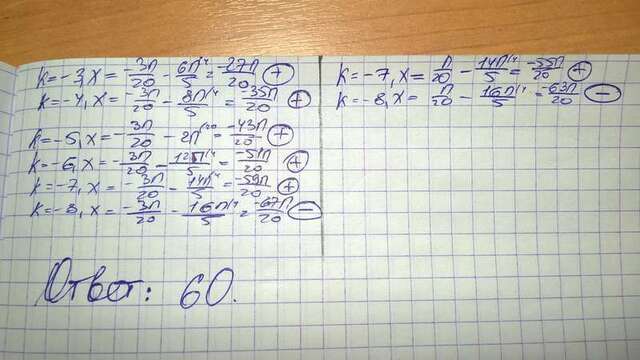 K=-3, X=-3π/20 - 6π/5 \4 = -27π/20 (+)
K=-4, X=-3π/20 - 8π/5 \4 = -35π/20 (+)
K=-5, X=-3π/20 - 2π \20 = -43π/20 (+)
K=-6, X=-3π/20 - 12π/5 \4 = -51π/20 (+)
K=-7, X=-3π/20 - 14π/5 \4 = -59π/20 (+)
K=-8, X=-3π/20 - 16π/5 \4 = -67π/20 (-)
K=-7, X=π/20 - 14π/5 \4 = -55π/20 (+)
K=-8, X=π/20 - 16π/5 \4 = -63π/20 (-)
Ответ: 60.